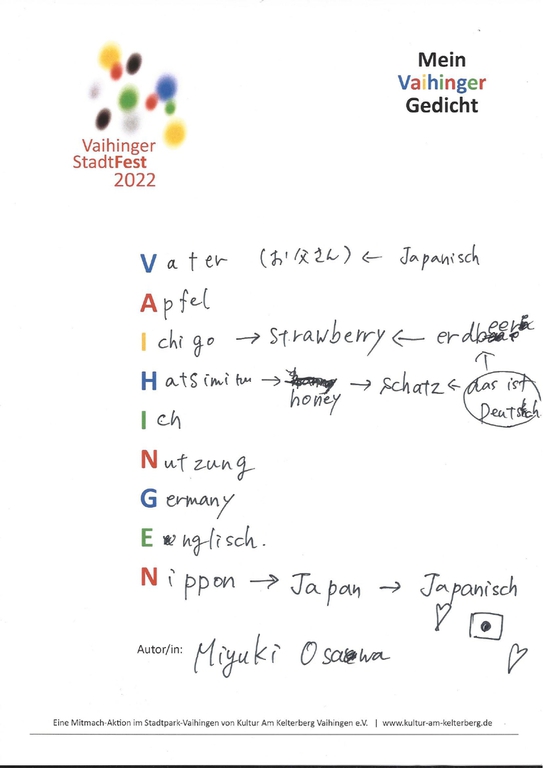 Vaihinger
StadtFest
2022
Mein
Vaihinger
Gedicht
Vater (お父さん) ← Japanisch
Apfel
Ichigo → Strawberry ← erdbeere
Hatsimitu → honey → Schatz ← das ist Deutsch
Ich
Nutzung
Germany
Englisch.
Nippon → Japan → Japanisch
Autor/in: Miyuki Osawa
Eine Mitmach-Aktion im Stadtpark-Vaihingen von Kultur Am Kelterberg Vaihingen e.V. | www.kultur-am-kelterberg.de